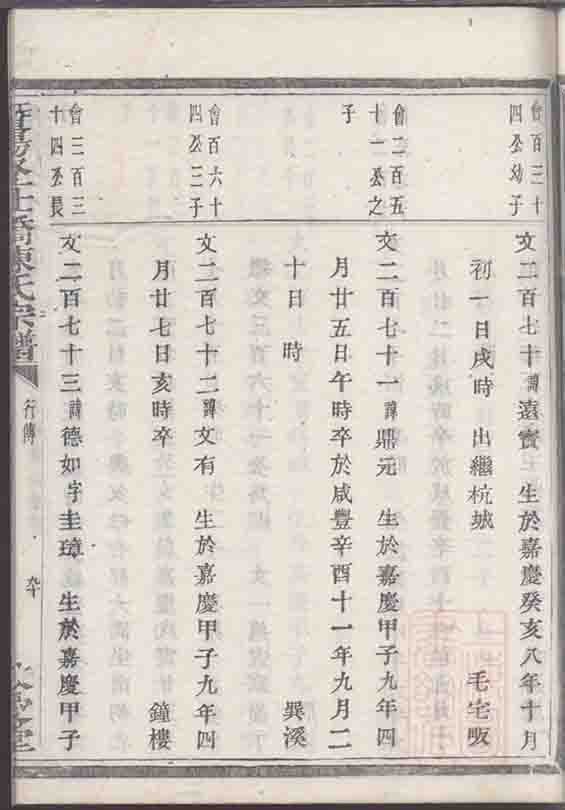 會百三十
四公幼子
文二百七十諱遠實 生於嘉慶癸亥八年十月
初一日戌時 出繼杭城 毛宅畈
會二百五
十一公之
子
文二百七十一諱鼎元 生於嘉慶甲子九年四
月廿五日午時卒於咸豐辛酉十一年九月二
十日 時 巽溪
會百六十
四公三子
文二百七十二諱文有 生於嘉慶甲子九年四
月廿七日亥時卒 鐘樓
會三百三
十四公長
文二百七十三諱德如字圭璋 生於嘉慶甲子
陳氏宗譜
行傳